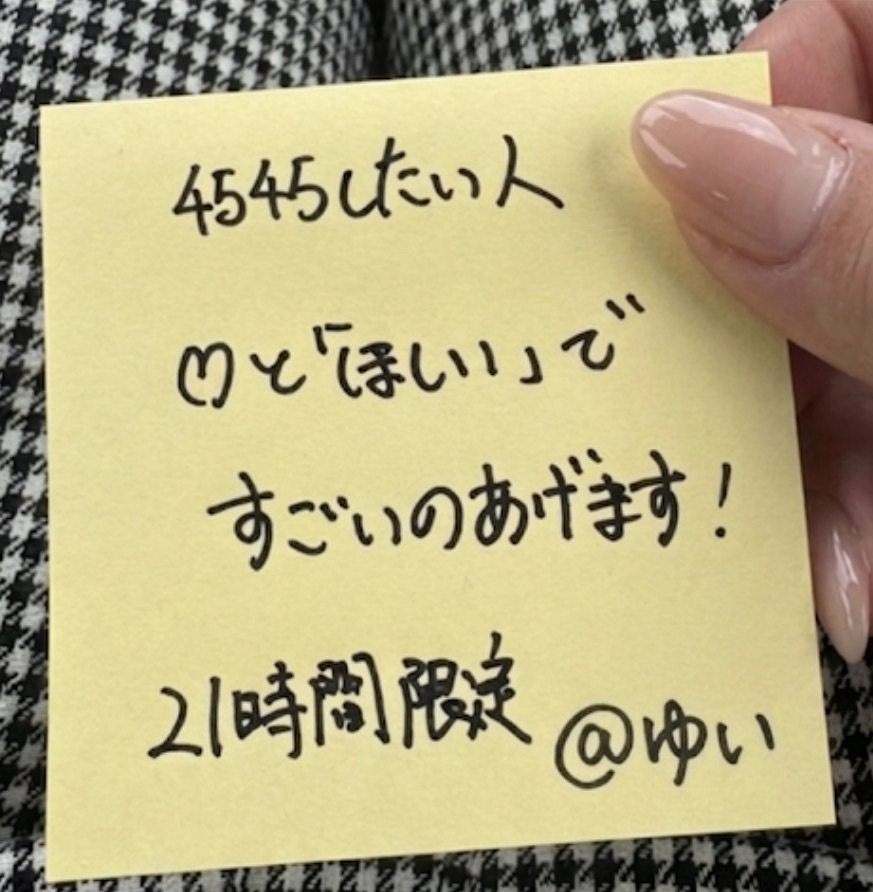 4545したい人
♡と「ほしい」で
すごいのあげます！
21時間限定 @ゆい